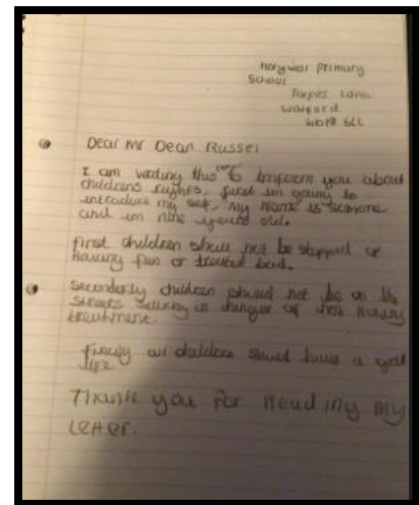 Primary
School
Lane
Watford
WD19 6LL
Dear Mr Dean Russel
I am writing this to inform you about
childrens rights. first im going to
introduce my self, my name is
and im nine years old.
First children shoud not be stopped of
Having fun or treated bad.
Secondly children shoud not be on the
streets in danger of not
treatment.
all children shoud have a good
life
Thank you For Reading my
Letter.